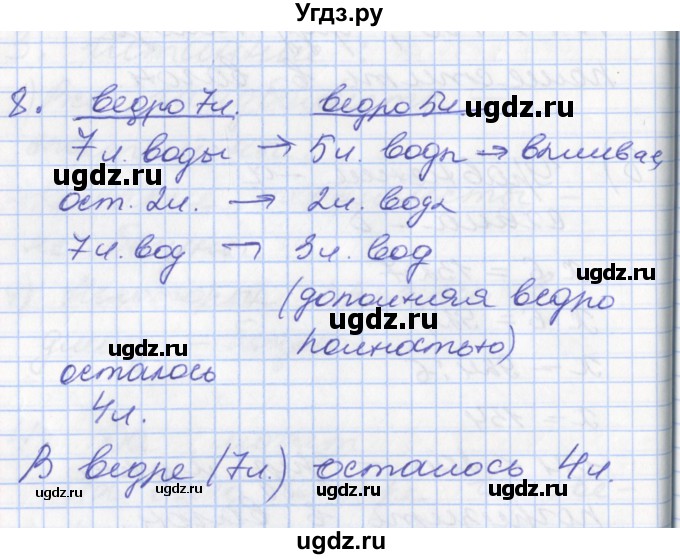 Угдз.ру
8. ведро 7л. ведро 5л.
7л. воды → 5л. воды → выливае
ост. 2л. → 2л. воды
7л. вод → 3л. вод
(дополняя ведро
полностью)
осталось
4л.
В ведре (7л.) осталось 4л.
ugdz.ru
ugdz.ru
ugdz.ru
ugdz.ru
ugdz.ru
ugdz.ru
ugdz.ru
ugdz.ru
ugdz.ru
ugdz.ru